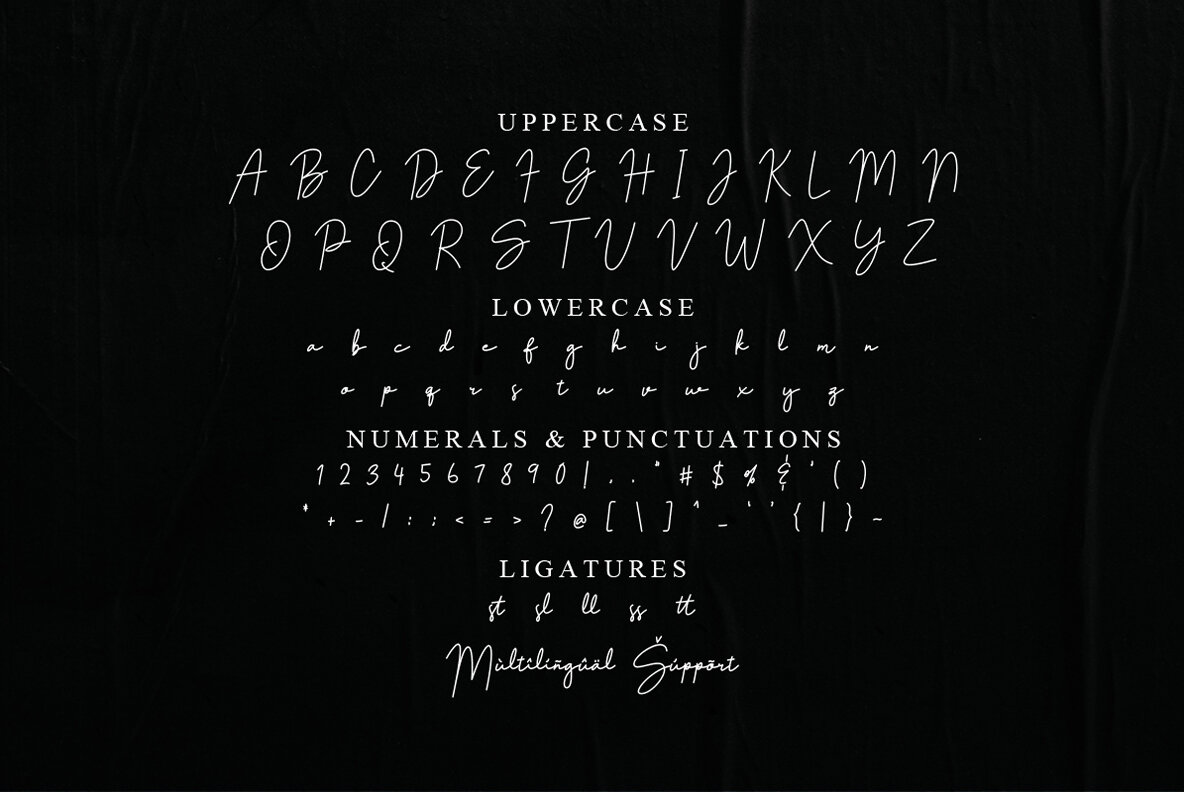 UPPERCASE
A B C D E F G H I J K L M N
O P Q R S T U V W X Y Z
LOWERCASE
a b c d e f g h i j k l m n
o p q r s t u v w x y z
NUMERALS & PUNCTUATIONS
1 2 3 4 5 6 7 8 9 0 | . . " # $ % & ' ( )
* + - / : ; < = > ? @ [ \ ] ^ _ ‘ ’ { | } ~
LIGATURES
st sl ll ss tt
Mùltîlíñgûäl Šúppõrt